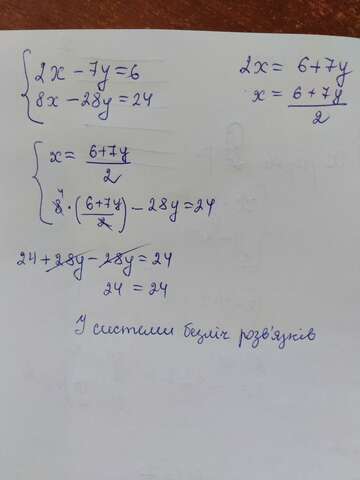 2x - 7y = 6
8x - 28y = 24
2x = 6+7y
x = (6+7y)/2
x = (6+7y)/2
8 · ((6+7y)/2) - 28y = 24
24 + 28y - 28y = 24
24 = 24
У системи безліч розв'язків